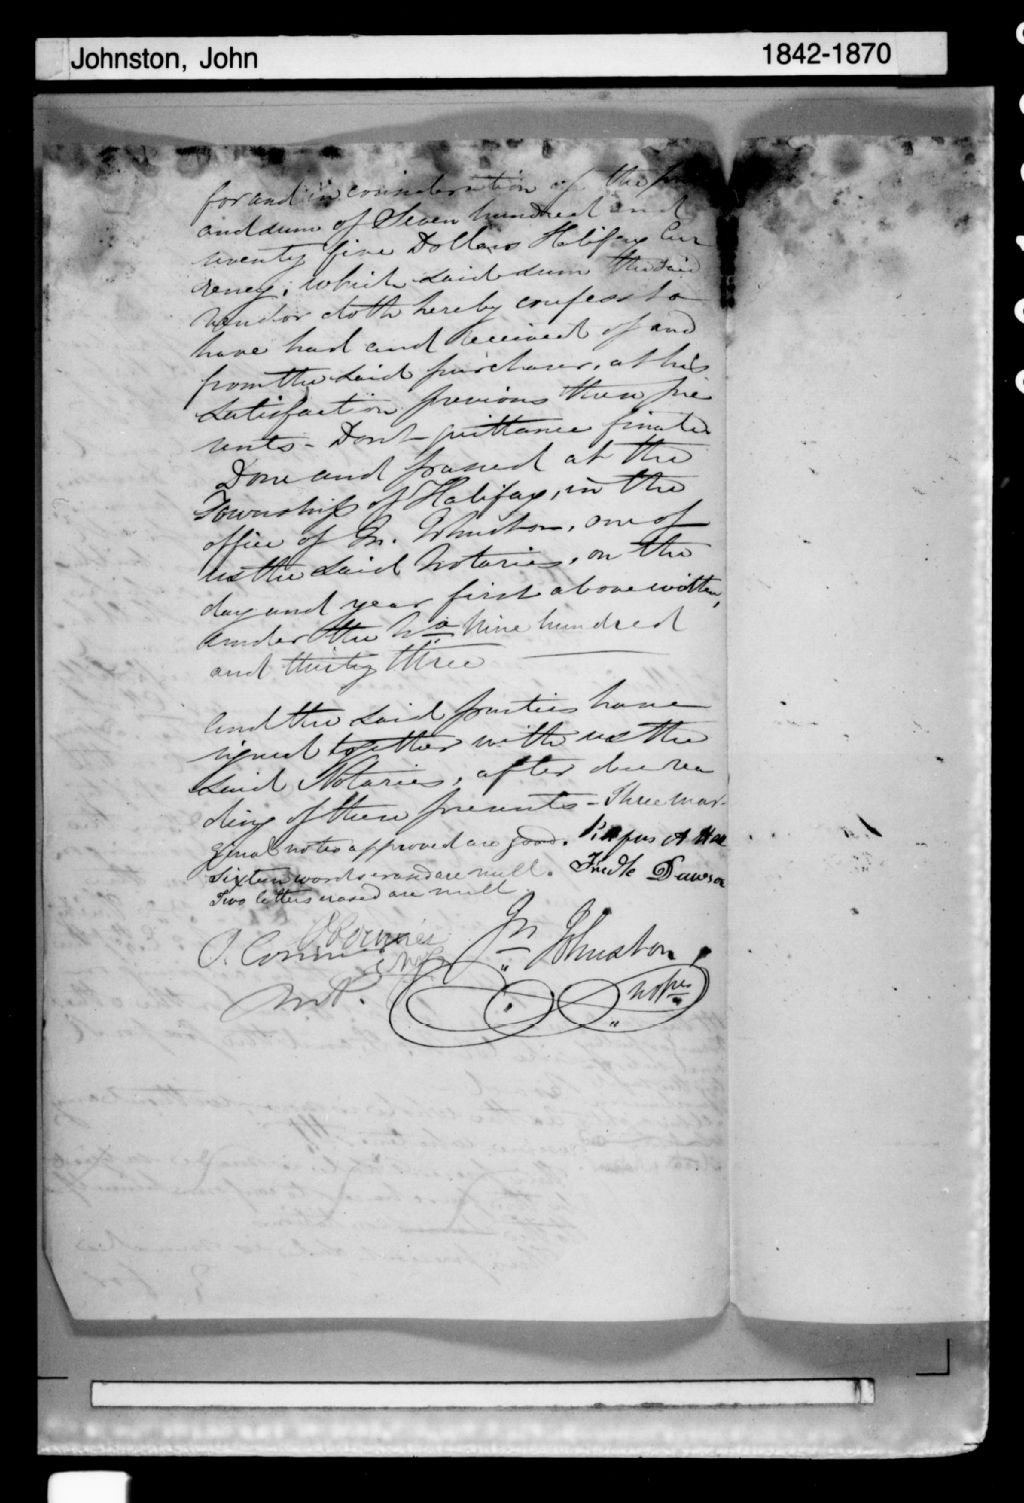 Johnston, John
1842-1870
for and in consideration of the
and sum of Seven hundred and
twenty five Dollars Halifax Cur
rency; which said sum the said
Vendor doth hereby confess to
have had and received of and
from the said purchaser, at his
satisfaction previous these pre
sents - Dont quittance finale
Done and passed at the
Township of Halifax, in the
office of Jn. Johnston, one of
us the said Notaries, on the
day and year first above written,
under the No Nine hundred
and thirty three
And the said parties have
signed together with us the
said Notaries, after due rea
ding of these presents - Three mar-
ginal notes approved are good.
Sixteen words erased are null.
Two letters erased are null
Rufus A
Fredk Dawson
P. Cormier
N.P.
Jn Johnston,